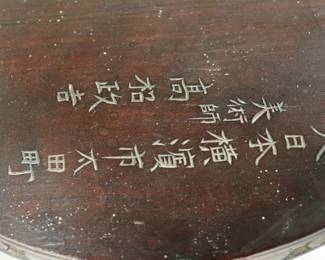 大日本横濱市太田町
美術師
高柗政吉